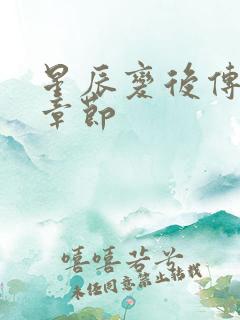 星辰變後傳
章節
嘻嘻芳芳
未经同意禁止转载